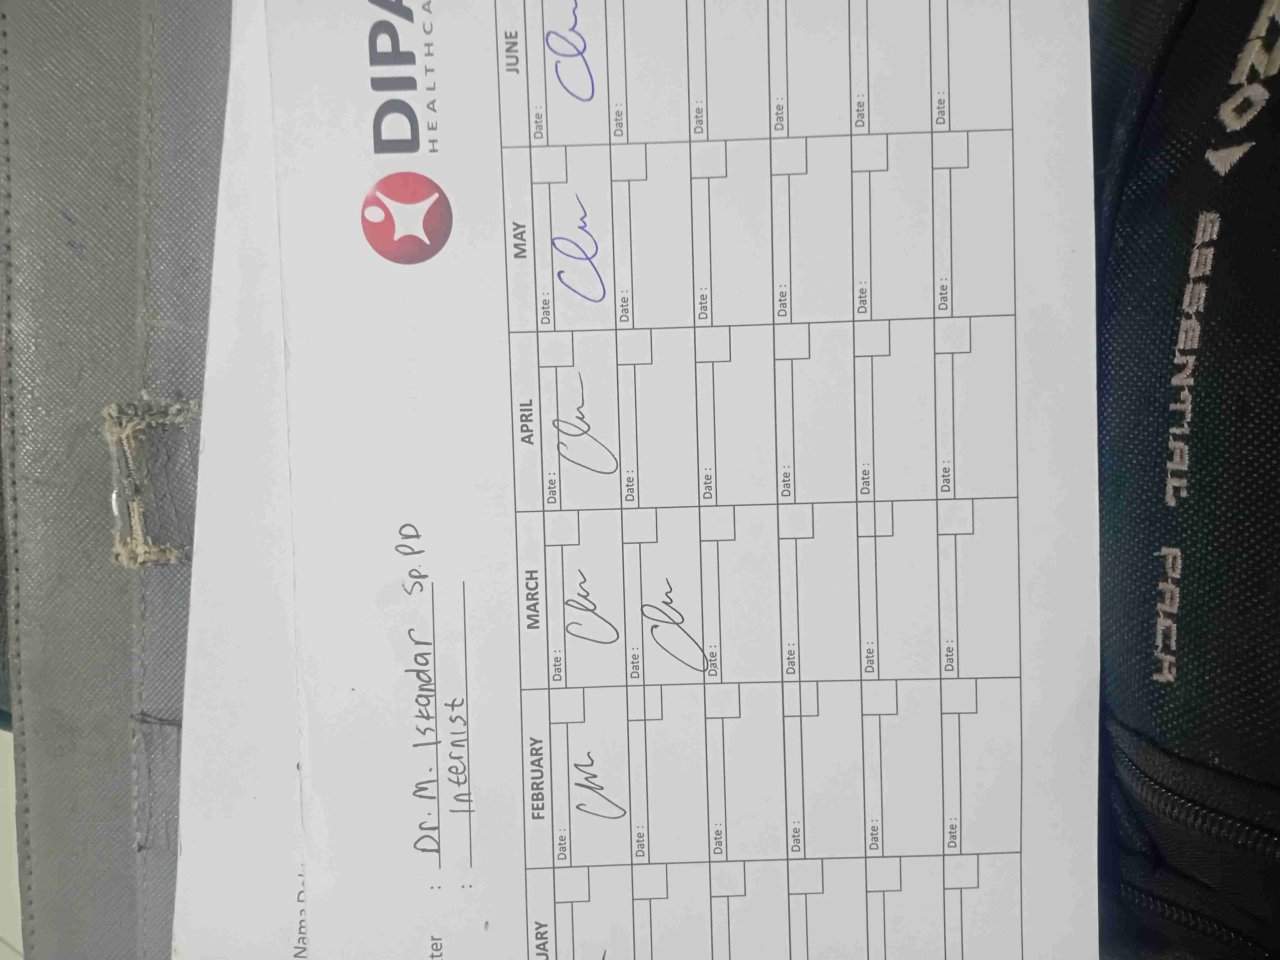 Nama Dok
DIPA
HEALTHCA
ter : Dr. M. Iskandar Sp. PD
: Internist
UARY FEBRUARY MARCH APRIL MAY JUNE
Date : Date : Date : Date : Date :
Date : Date : Date : Date : Date :
Date : Date : Date : Date : Date :
Date : Date : Date : Date : Date :
Date : Date : Date : Date : Date :
Date : Date : Date : Date : Date :
ESSENTIAL PACK